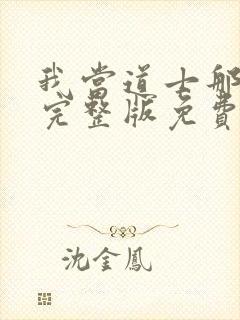 我當道士那
完整版免費
沈金鳳